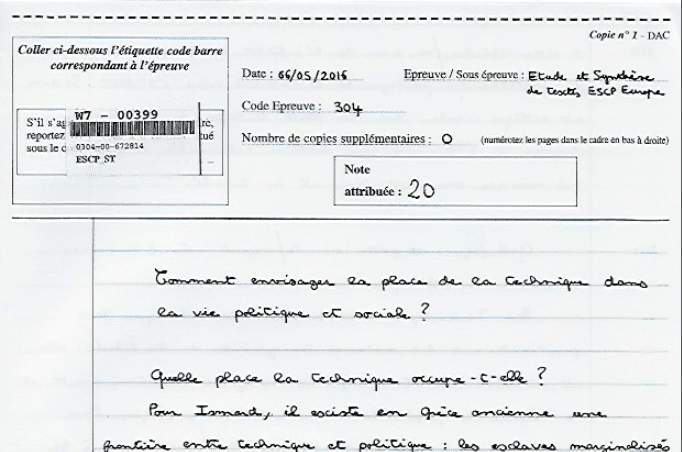 Copie n° 1 - DAC
Coller ci-dessous l'étiquette code barre
correspondant à l'épreuve
Date : 66/05/2016
Epreuve / Sous épreuve : Etude et Synthèse
de textes ESCP Europe
Code Epreuve : 304
S'il s'ag
re,
W7 - 00399
reportez
tué
sous le c
0304-00-672814
ESCP_ST
Nombre de copies supplémentaires : 0 (numérotez les pages dans le cadre en bas à droite)
Note
attribuée : 20
Comment envisager la place de la technique dans
la vie politique et sociale ?
Quelle place la technique occupe-t-elle ?
Pour Ismard, il existe en Grèce ancienne une
frontière entre technique et politique : les esclaves marginalisés